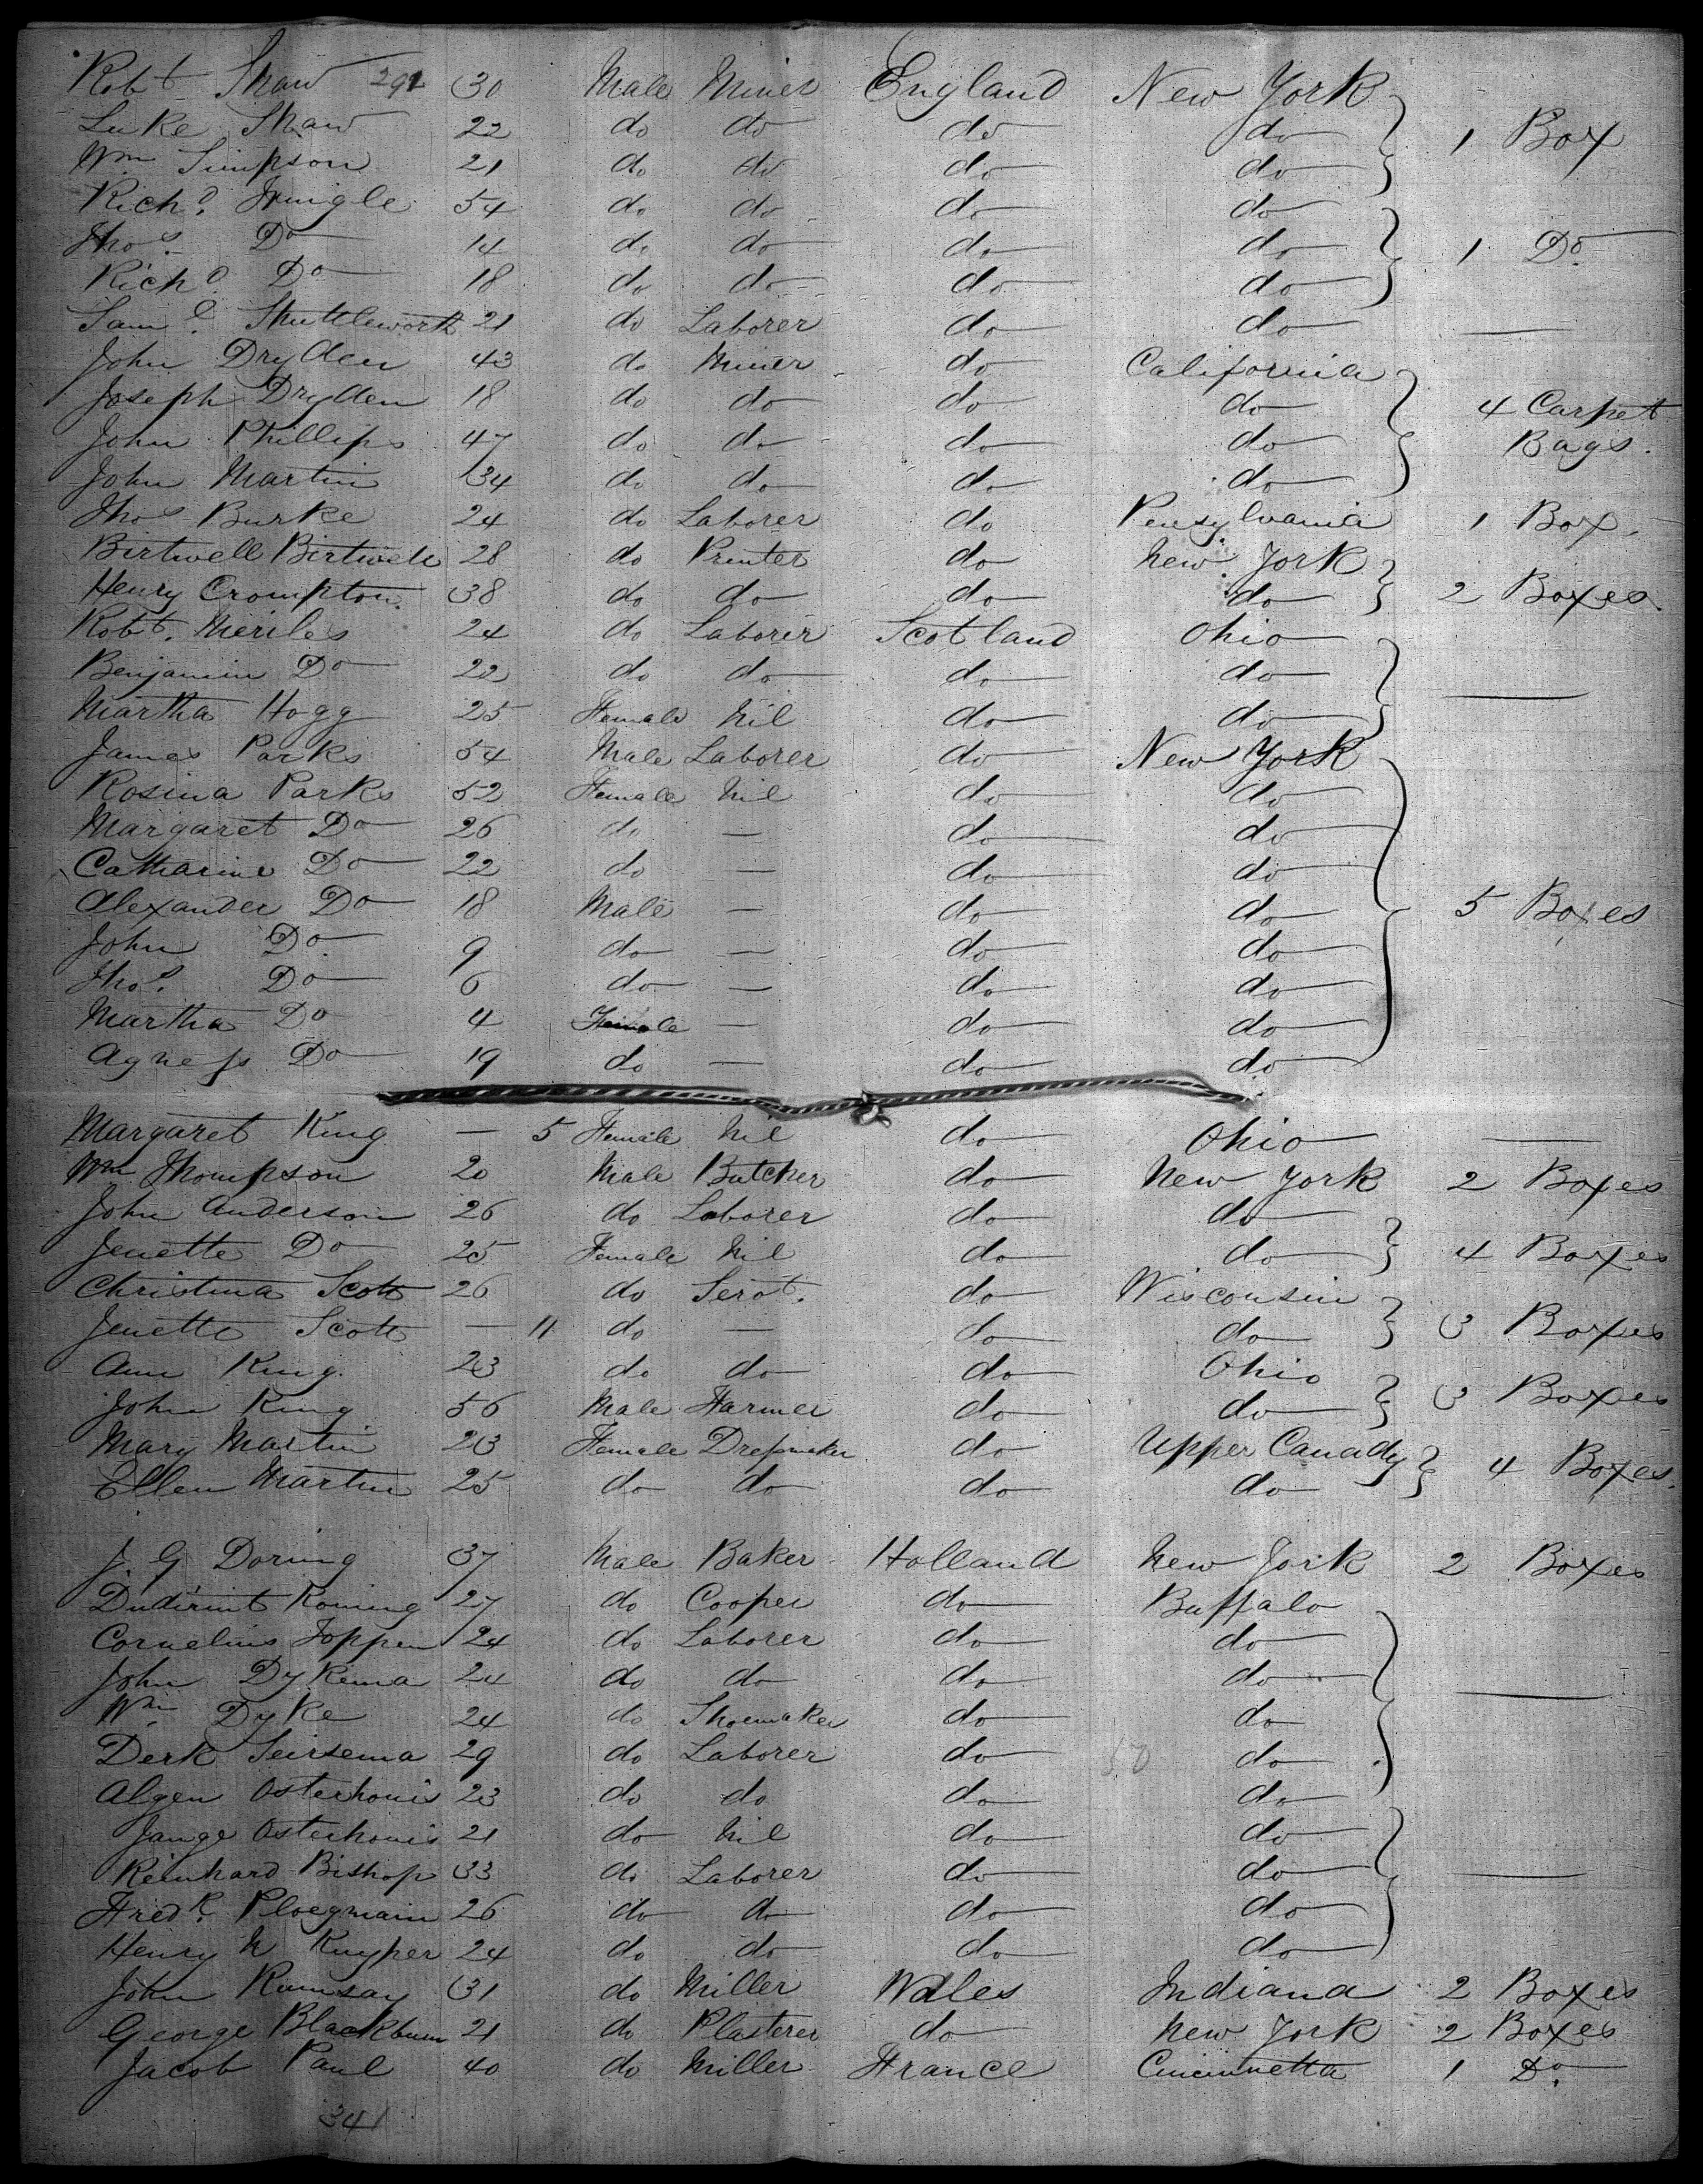 Robt Shaw 292 30 Male Miner England New York
Luke Shaw 22 do do do do 1 Box
Wm Simpson 21 do do do do
Richd. Hringle 54 do do do do
Thos. Do 14 do do do do 1 Do.
Richd Do 18 do do do do
Saml. Shuttleworth 21 do Laborer do do —
John Dryden 43 do Miner do California
Joseph Dryden 18 do do do do 4 Carpet
John Phillips 47 do do do do Bags.
John Martin 34 do do do do
Thos Burke 24 do Laborer do Pensylvania 1 Box.
Birtwell Birtwell 28 do Printer do New York
Henry Crompton. 38 do do do do 2 Boxes.
Robt. Meriles 24 do Laborer Scotland Ohio
Benjamin Do 22 do do do do —
Martha Hogg 25 Female Nil do do
James Parks 54 Male Laborer do New York
Rosina Parks 52 Female Nil do do
Margaret Do 26 do — do do
Catharine Do 22 do — do do
Alexander Do 18 Male — do do 5 Boxes
John Do 9 do — do do
Thos. Do 6 do — do do
Martha Do 4 Female — do do
Agness Do 19 do — do do
Margaret King — 5 Female Nil do Ohio —
Wm Thompson 20 Male Butcher do New York 2 Boxes
John Anderson 26 do Laborer do do
Jenette Do 25 Female Nil do do 4 Boxes
Christina Scott 26 do Servt. do Wisconsin
Jenette Scott — 11 do — do do 3 Boxes
Ann King. 23 do do do Ohio
John King 56 Male Farmer do do 3 Boxes
Mary Martin 23 Female Dressmaker do Upper Canady
Ellen Martin 25 do do do do 4 Boxes.
J. G Doring 37 Male Baker Holland New York 2 Boxes
Koning 27 do Cooper do Buffalo
Cornelius Foppen 24 do Laborer do do
John Dykema 24 do do do do
Wm. Dyke 24 do Shoemaker do do —
Derk Seirsema 29 do Laborer do do
Algen Osterhouis 23 do do do do
Jange Osterhouis 21 do Nil do do
Reinhard Bishop 33 do Laborer do do —
Fredk. Ploegmain 26 do do do do
Henry N Kuyper 24 do do do do
John Rumsay 31 do Miller Wales Indiana 2 Boxes
George Blackburn 21 do Plasterer do New York 2 Boxes
Jacob Paul 40 do Miller France Cincinnetta 1 Do.
341